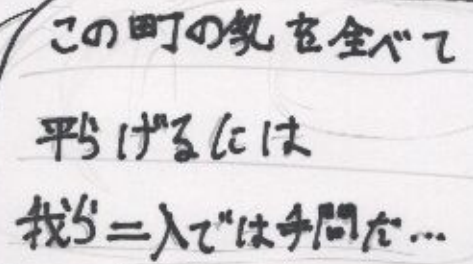 この町の乳を全べて
平らげるには
我ら二人では手間だ…